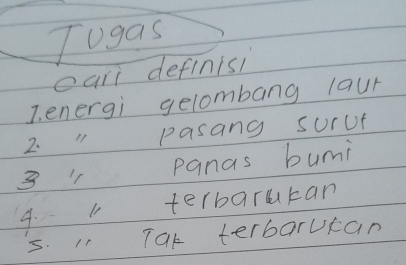 Tugas
cari definisi
1. energi gelombang laut
2. " pasang surut
3 " panas bumi
4. " terbarukan
5. " Tak terbarukan